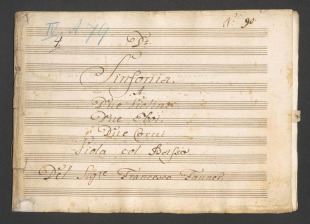 IV A 79
Sinfonia
A
Due Violini
Due Oboi
Due Corni
Viola col Basso
Del Sigre Francesco